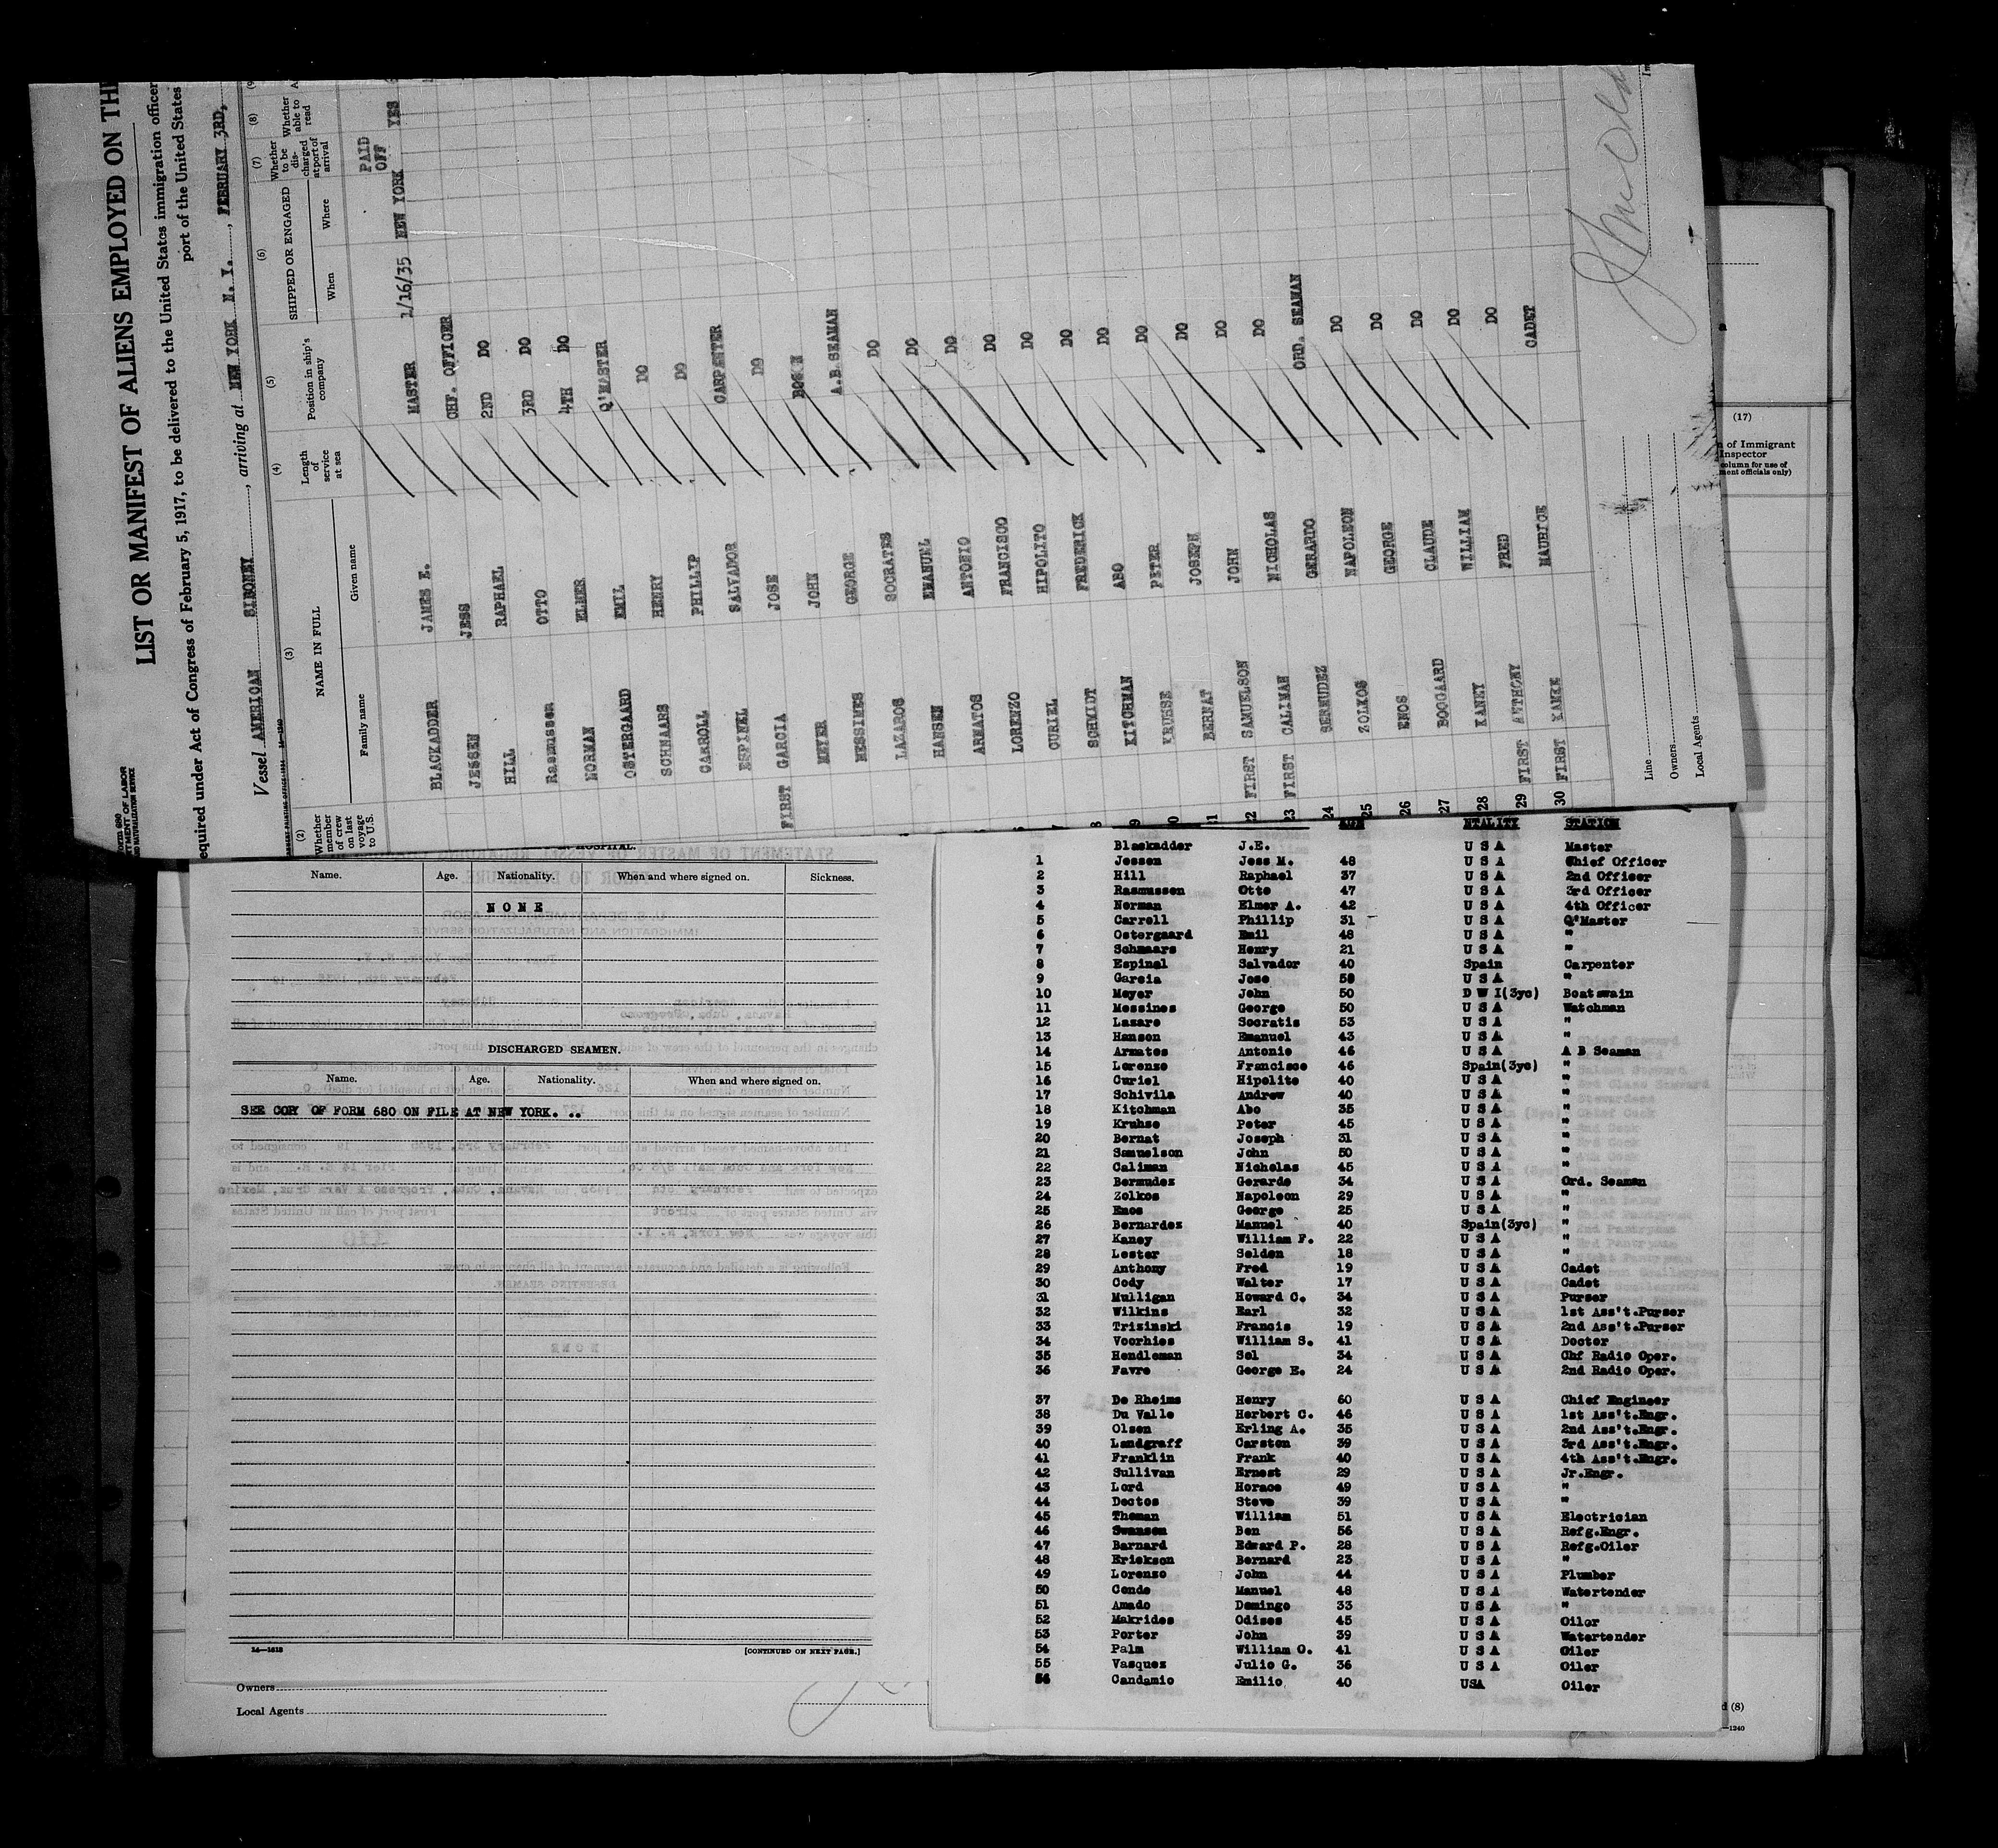 LIST OR MANIFEST OF ALIENS EMPLOYED ON TH
equired under Act of Congress of February 5, 1917, to be delivered to the United States immigration officer
port of the United States
Vessel AMERICAN SIBONEY, arriving at NEW YORK N. Y., FEBRUARY 3RD,
(2) (3) (4) (5) (6) (7) (8)
Whether member of crew on last voyage to U.S.
NAME IN FULL
Family name Given name
Length of service at sea
Position in ship's company
SHIPPED OR ENGAGED
When Where
Whether to be discharged at port of arrival
Whether able to read
PAID OFF
BLACKADDER JAMES E. MASTER 1/16/35 NEW YORK YES
JESSEN JESS CHF. OFFICER
HILL RAPHAEL 2ND DO
Rasmussen OTTO 3RD DO
NORMAN ELMER 4TH DO
OSTERGAARD EMIL Q'MASTER
SCHNAARS HENRY DO
CARROLL PHILLIP DO
ESPINEL SALVADOR CARPENTER
FIRST GARCIA JOSE DO
MEYER JOHN BOS'N
MESSIMES GEORGE A.B.SEAMAN
LAZAROS SOCRATES DO
HANSEN EMANUEL DO
ARMATOS ANTONIO DO
LORENZO FRANCISCO DO
CURIEL HIPOLITO DO
SCHMIDT FREDERICK DO
KITCHMAN ABO DO
KRUHSE PETER DO
BERNAT JOSEPH DO
22 FIRST SAMUELSON JOHN DO
23 FIRST CALIMAN NICHOLAS DO
24 BERMUDEZ GERARDO ORD. SEAMAN
25 ZOLKOS NAPOLEON DO
26 ENOS GEORGE DO
27 BOOGAARD CLAUDE DO
28 KANEY WILLIAM DO
29 FIRST ANTHONY FRED DO
30 FIRST KAMKE MAURICE CADET
Line
Owners
Local Agents
(17)
of Immigrant
Inspector
column for use of
ment officials only)
Name. Age. Nationality. When and where signed on. Sickness.
NONE
DISCHARGED SEAMEN.
Name. Age. Nationality. When and where signed on.
SEE COPY OF FORM 680 ON FILE AT NEW YORK. ..
14—1618 [CONTINUED ON NEXT PAGE.]
Owners
Local Agents
NTALITY STATION
Blackadder J.E. U S A Master
1 Jessen Jess M. 48 U S A Chief Officer
2 Hill Raphael 37 U S A 2nd Officer
3 Rasmussen Otto 47 U S A 3rd Officer
4 Norman Elmer A. 42 U S A 4th Officer
5 Carroll Phillip 31 U S A Q'Master
6 Ostergaard Emil 48 U S A "
7 Schnaars Henry 21 U S A "
8 Espinel Salvador 40 Spain Carpenter
9 Garcia Jose 58 U S A "
10 Meyer John 50 D W I(3yc) Boatswain
11 Messines George 50 U S A Watchman
12 Lazare Socratis 53 U S A "
13 Hanson Emanuel 43 U S A "
14 Armatos Antonio 46 U S A A B Seaman
15 Lorenzo Francisco 46 Spain(3yc) "
16 Curiel Hipolite 40 U S A "
17 Schivila Andrew 40 U S A "
18 Kitchman Abo 35 U S A "
19 Kruhse Peter 45 U S A "
20 Bernat Joseph 31 U S A "
21 Samuelson John 50 U S A "
22 Caliman Nicholas 45 U S A "
23 Bermudez Gerardo 34 U S A Ord. Seaman
24 Zolkos Napoleon 29 U S A "
25 Enos George 25 U S A "
26 Bernardez Manuel 40 Spain(3yc) "
27 Kaney William F. 22 U S A "
28 Lester Selden 18 U S A "
29 Anthony Fred 19 U S A Cadet
30 Cody Walter 17 U S A Cadet
31 Mulligan Howard C. 34 U S A Purser
32 Wilkins Earl 32 U S A 1st Ass't.Purser
33 Trizinski Francis 19 U S A 2nd Ass't.Purser
34 Voorhies William S. 41 U S A Doctor
35 Hendleman Sol 34 U S A Chf Radio Oper.
36 Favre George E. 24 U S A 2nd Radio Oper.
37 De Rheims Henry 60 U S A Chief Engineer
38 Du Valle Herbert C. 46 U S A 1st Ass't.Engr.
39 Olsen Erling A. 35 U S A 2nd Ass't.Engr.
40 Landgraff Carsten 39 U S A 3rd Ass't.Engr.
41 Franklin Frank 40 U S A 4th Ass't.Engr.
42 Sullivan Ernest 29 U S A Jr.Engr.
43 Lord Horace 49 U S A "
44 Dectos Steve 39 U S A "
45 Thoman William 51 U S A Electrician
46 Swanson Ben 56 U S A Refg.Engr.
47 Barnard Edward P. 28 U S A Refg.Oiler
48 Erickson Bernard 23 U S A "
49 Lorenzo John 44 U S A Plumber
50 Conde Manuel 48 U S A Watertender
51 Amado Domingo 33 U S A "
52 Makrides Odises 45 U S A Oiler
53 Porter John 39 U S A Watertender
54 Palm William O. 41 U S A Oiler
55 Vasquez Julio G. 36 U S A Oiler
56 Candamio Emilio 40 USA Oiler
d (8)
—1240